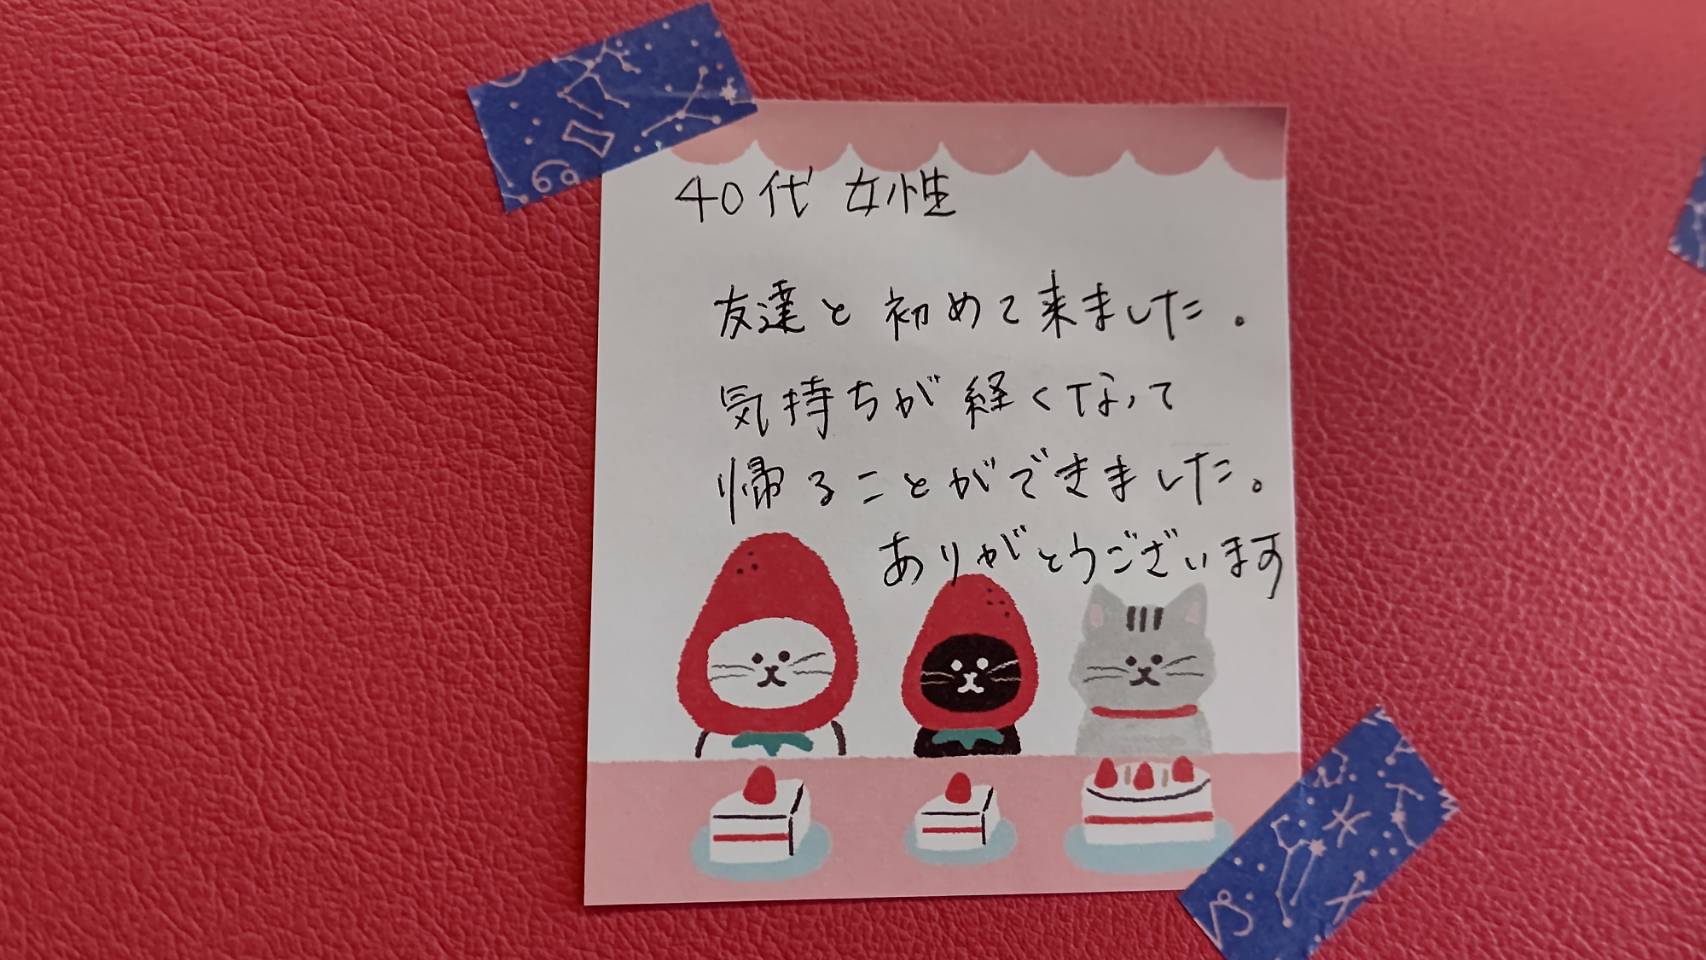 40代 女性
友達と初めて来ました。
気持ちが経くなって
帰ることができました。
ありがとうございます